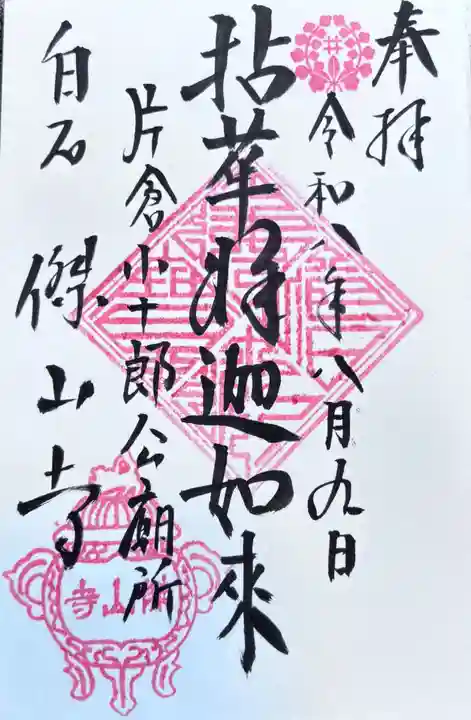 奉拝
令和八年八月九日
拈華釋迦如來
片倉小十郎公廟所
白石 傑山寺
傑山寺